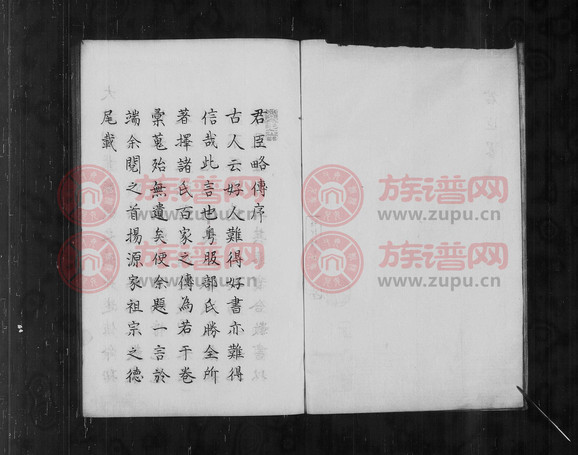 君臣略傳序
古人云好人難得好書亦難得
信哉此言也粵服部氏勝全所
著擇諸氏百家之傳為若干卷
彙蒐殆無遺矣使余題一言於
端余閱之首揚源家祖宗之德
尾載
族谱网 族谱网
www.zupu.cn www.zupu.cn
族谱网 族谱网
www.zupu.cn www.zupu.cn